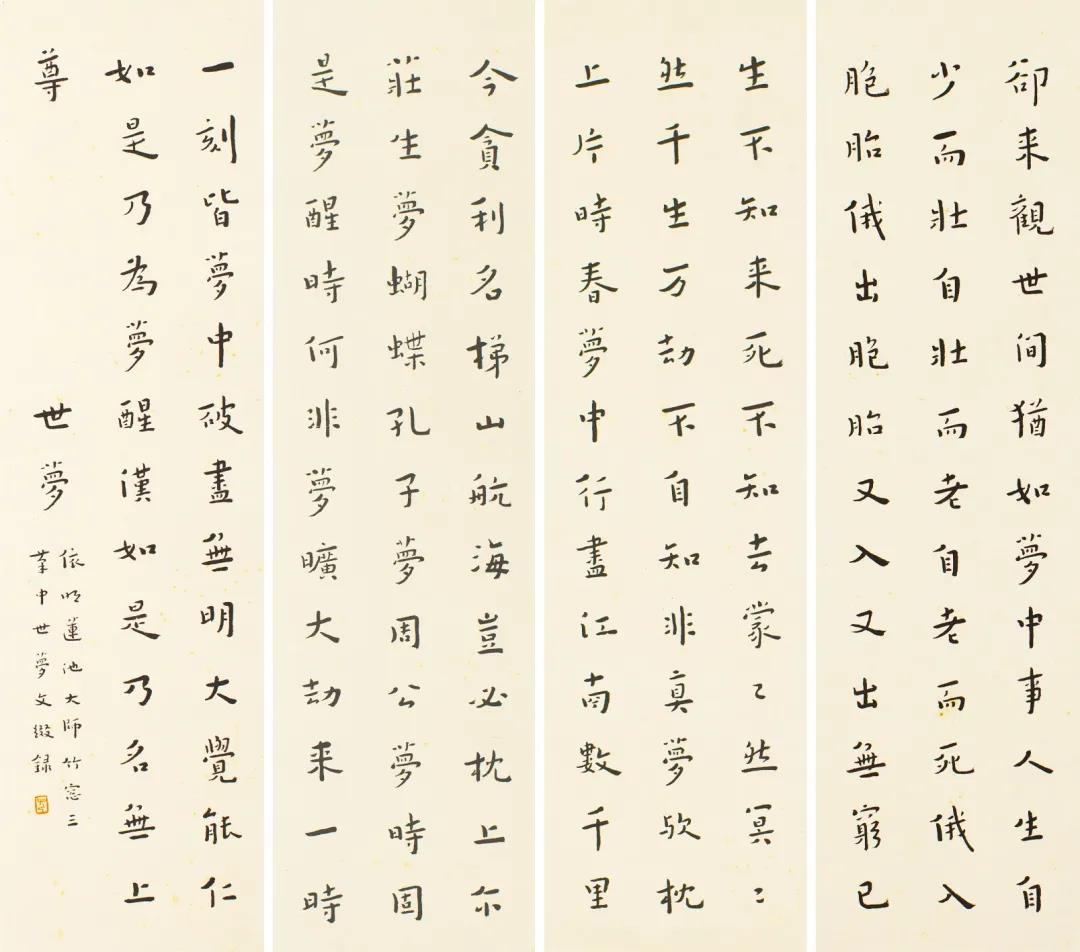 卻来觀世间猶如夢中事人生自
少而壯自壯而老自老而死俄入
胞胎俄出胞胎又入又出無窮已
生不知来死不知去蒙〻然冥〻
然千生万劫不自知非真夢欤枕
上片時春夢中行盡江南數千里
今貪利名梯山航海豈必枕上尔
莊生夢蝴蝶孔子夢周公夢時固
是夢醒時何非夢曠大劫来一時
一刻皆夢中破盡無明大覺能仁
如是乃為夢醒漢如是乃名無上
尊
世夢
依明蓮池大師竹窓三
筆中世夢文綴録